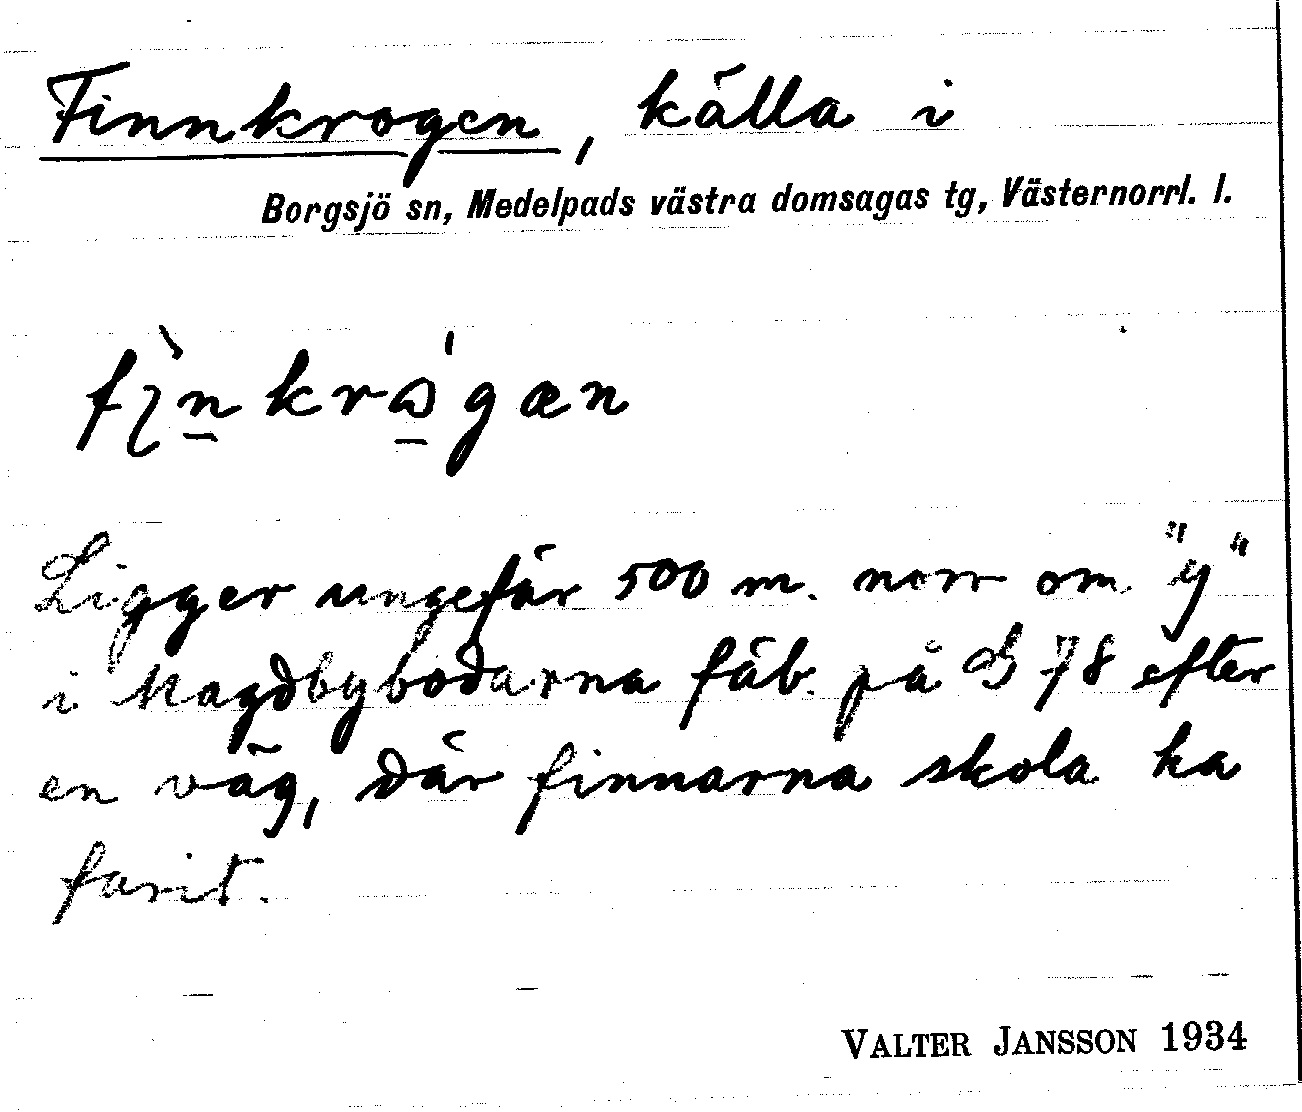 Finnkrogen, källa i
Borgsjö sn, Medelpads västra domsagas tg, Västernorrl. l.
Ligger ungefär 500 m. norr om "y"
i Magdbybodarna fäb. på G 78 efter
en väg, där finnarna skola ha
farit.
VALTER JANSSON 1934